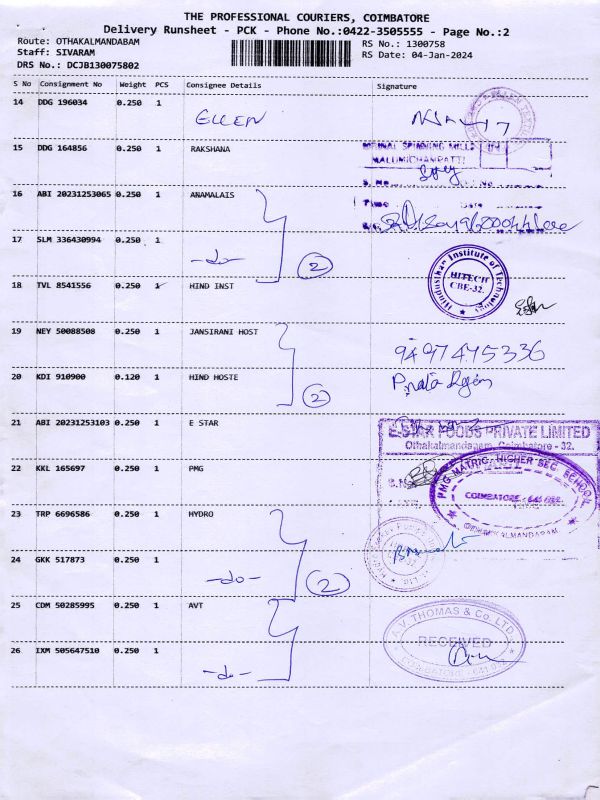 THE PROFESSIONAL COURIERS, COIMBATORE
Delivery Runsheet - PCK - Phone No.:0422-3505555 - Page No.:2
Route: OTHAKALMANDABAM
RS No.: 1300758
Staff: SIVARAM
RS Date: 04-Jan-2024
DRS No.: DCJB130075802
S No Consignment No Weight PCS Consignee Details Signature
14 DDG 196034 0.250 1 ELLEN
15 DDG 164856 0.250 1 RAKSHANA
SPINNING MILL
MALUMICHAMPATTI
16 ABI 20231253065 0.250 1 ANAMALAIS
17 SLM 336430994 0.250 1 -do- 2
18 TVL 8541556 0.250 1 HIND INST
Hindusthan Institute of Technology
HITECH
CBE-32.
19 NEY 50088508 0.250 1 JANSIRANI HOST
9497475336
20 KDI 910900 0.120 1 HIND HOSTE 2
21 ABI 20231253103 0.250 1 E STAR
E.STAR FOODS PRIVATE LIMITED
Othakalmandapam, Coimbatore - 32.
22 KKL 165697 0.250 1 PMG
PMG MATRIC. HIGHER SEC. SCHOOL
COIMBATORE - 641 032.
OTHAKKALMANDAPAM
23 TRP 6696586 0.250 1 HYDRO
24 GKK 517873 0.250 1 -do- 2
25 CDM 50285995 0.250 1 AVT
A.V. THOMAS & Co. LTD.
RECEIVED
COIMBATORE - 641 032
26 IXM 505647510 0.250 1 -do-